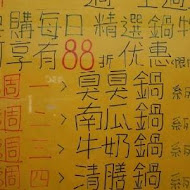 購每日精選鍋
享有88折优惠
週一>臭臭鍋
週二>南瓜鍋
週三>牛奶鍋
週四>清膳鍋